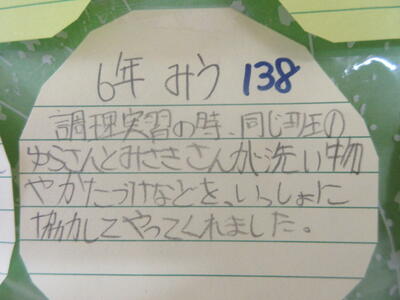 6年 みう 138
調理実習の時、同じ班の
ゆらさんとみさきさんが洗い物
やかたづけなどを、いっしょに
協力してやってくれました。